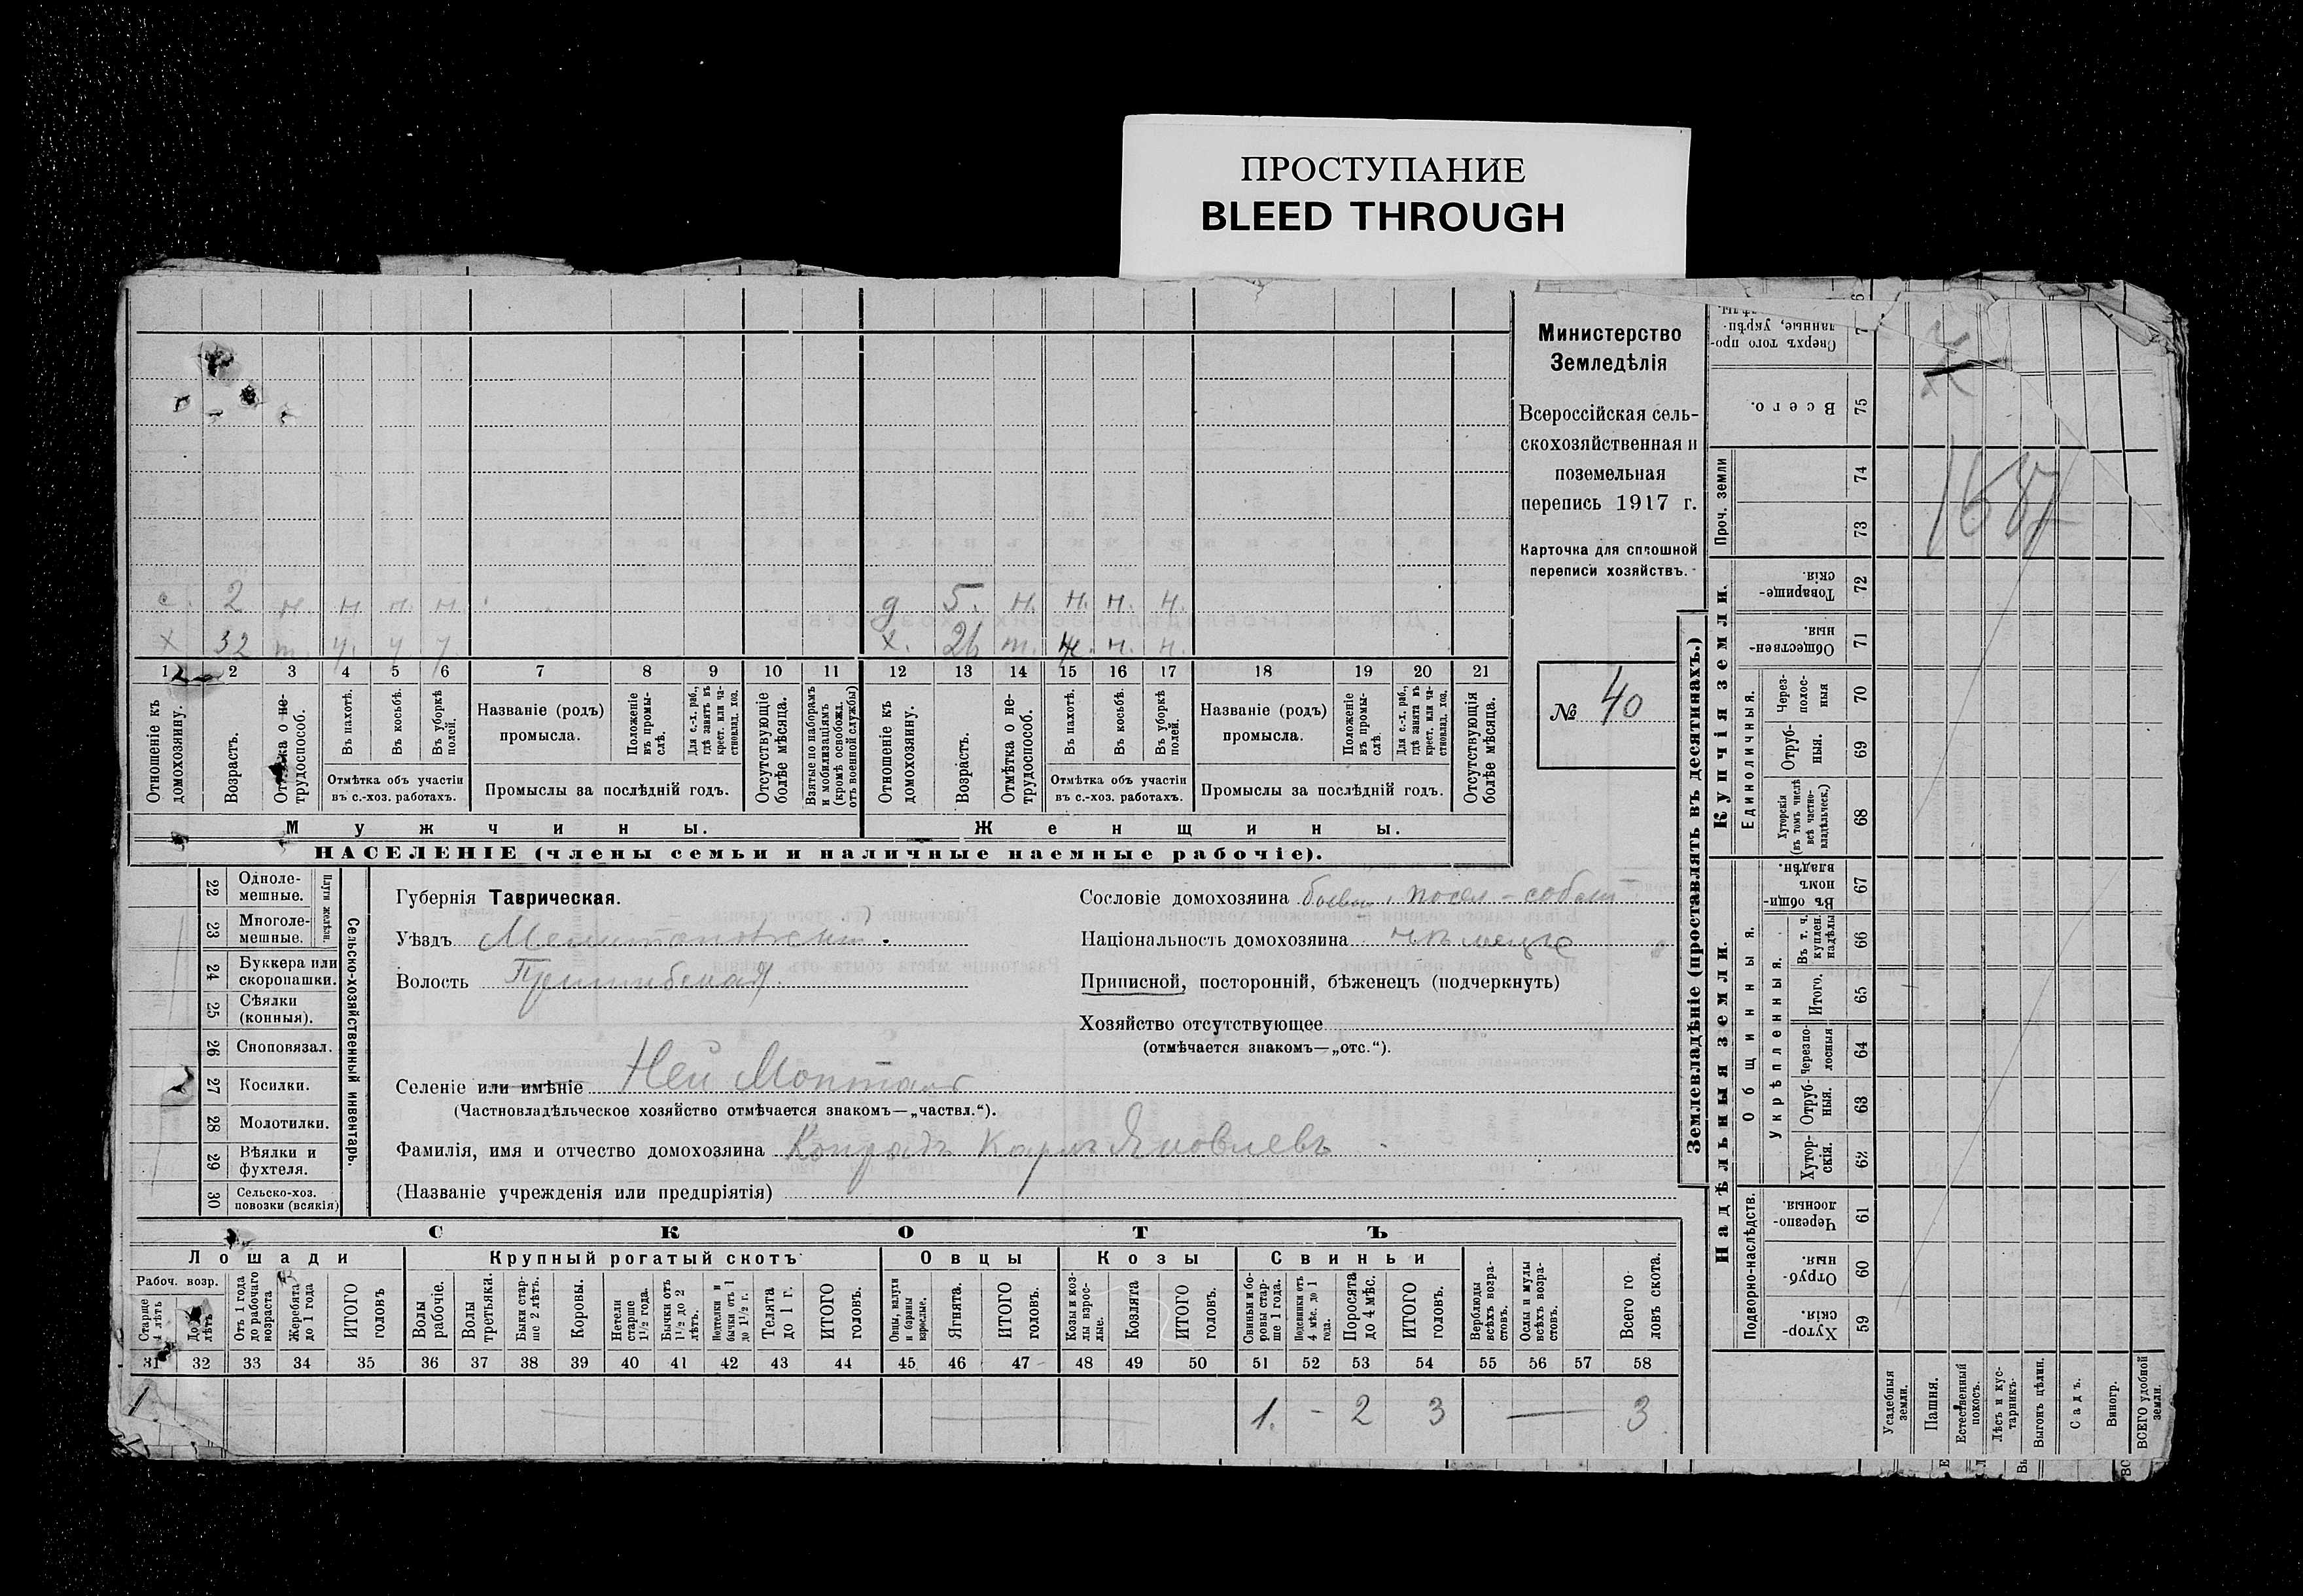 ПРОСТУПАНИЕ
BLEED THROUGH
Министерство
Земледѣлія
Всероссійская сель-
скохозяйственная и
поземельная
перепись 1917 г.
Карточка для сплошной
переписи хозяйствъ.
№ 40
с. 2 н. н. н. н. д 5. н. н. н. н.
х 32 т. ч. ч. ч. х. 26 т. н. н. н.
1 2 3 4 5 6 7 8 9 10 11 12 13 14 15 16 17 18 19 20 21
Отношеніе къ домохозяину.
Возрастъ.
Отмѣтка о не-трудоспособ.
Въ пахотѣ.
Въ косьбѣ.
Въ уборкѣ полей.
Отмѣтка объ участіи
въ с.-хоз. работахъ.
Названіе (родъ)
промысла.
Положеніе въ промы-слѣ.
Для с.-х. раб., гдѣ занятъ въ крест. или ча-стновлад. хоз.
Промыслы за послѣдній годъ.
Отсутствующіе болѣе мѣсяца.
Взятые по наборамъ и мобилизаціямъ (кромѣ освобожд. отъ военной службы)
Отношеніе къ домохозяину.
Возрастъ.
Отмѣтка о не-трудоспособ.
Въ пахотѣ.
Въ косьбѣ.
Въ уборкѣ полей.
Отмѣтка объ участіи
въ с.-хоз. работахъ.
Названіе (родъ)
промысла.
Положеніе въ промы-слѣ.
Для с.-х. раб., гдѣ занята въ крест. или ча-стновлад. хоз.
Промыслы за послѣдній годъ.
Отсутствующія болѣе мѣсяца.
Мужчины. Женщины.
НАСЕЛЕНІЕ (члены семьи и наличные наемные рабочіе).
22 Одноле-мешные.
23 Многоле-мешные.
Плуги желѣзн.
24 Буккера или скоропашки.
25 Сѣялки (конныя).
26 Сноповязал.
27 Косилки.
28 Молотилки.
29 Вѣялки и фухтеля.
30 Сельско-хоз. повозки (всякія)
Сельско-хозяйственный инвентарь.
Губернія Таврическая.
Уѣздъ Мелитопольскій.
Волость Пришибская.
Сословіе домохозяина посел-собств
Національность домохозяина нѣмецъ
Приписной, посторонній, бѣженецъ (подчеркнуть)
Хозяйство отсутствующее
(отмѣчается знакомъ—„отс.“).
Селеніе или имѣніе Ней Монталь
(Частновладѣльческое хозяйство отмѣчается знакомъ—„частвл.“).
Фамилія, имя и отчество домохозяина Конрадъ Карлъ Яковлевъ
(Названіе учрежденія или предпріятія)
СКОТЪ
Лошади Крупный рогатый скотъ Овцы Козы Свиньи
Рабоч. возр.
Старше 4 лѣтъ
До 4 лѣтъ
Отъ 1 года до рабочаго возраста
Жеребята до 1 года
ИТОГО головъ
Волы рабочіе.
Волы третьяки.
Быки стар-ше 2 лѣтъ.
Коровы.
Нетели старше 1½ года.
Бычки отъ 1½ до 2 лѣтъ.
Нетелки и бычки отъ 1 до 1½ г.
Телята до 1 г.
ИТОГО головъ.
Овцы, валухи и бараны взрослые.
Ягнята.
ИТОГО головъ.
Козы и коз-лы взрос-лые.
Козлята
ИТОГО головъ.
Свиньи и бо-ровы стар-ше 1 года.
Подсвинки отъ 4 мѣс. до 1 года.
Поросята до 4 мѣс.
ИТОГО головъ.
Верблюды всѣхъ возра-стовъ.
Ослы и мулы всѣхъ возра-стовъ.
Всего го-ловъ скота.
31 32 33 34 35 36 37 38 39 40 41 42 43 44 45 46 47 48 49 50 51 52 53 54 55 56 57 58
1. - 2 3 — 3
Землевладѣніе (проставлять въ десятинахъ.)
Купчія земли.
Надѣльныя земли.
Сверхъ того про-
Всего. 75
Проч. земли 74 73
Товарище-скія. 72
Обществен-ныя. 71
Единоличныя.
Через-полос-ныя 70
Отруб-ныя. 69
Хуторскія (въ томъ числѣ всѣ частно-владѣльческ.) 68
Общинныя.
Въ общи-номъ владѣн. 67
Укрѣпленныя.
Въ т. ч. куплен. надѣлы 66
Итого. 65
Черезпо-лосныя 64
Отруб-ныя. 63
Хутор-скія. 62
Подворно-наслѣдств.
Черезпо-лосныя. 61
Отруб-ныя. 60
Хутор-скія. 59
1687
Усадебныя земли.
Пашня.
Естественный покосъ.
Лѣсъ и кус-тарникъ.
Выгонъ цѣлин.
Садъ.
Виногр.
ВСЕГО удобной земли.